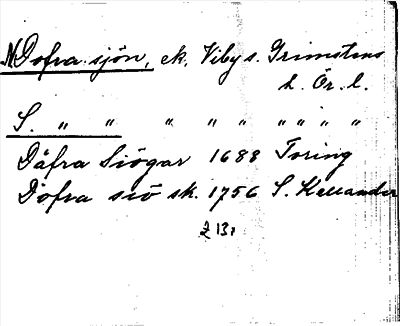 N. Dofra sjön, ek. Viby s. Grimstens
h. Ör. l.
S. " " " " " " " " "
Dåfra Siögar 1688 Toring
Döfra siö sk. 1756 S. Kellander